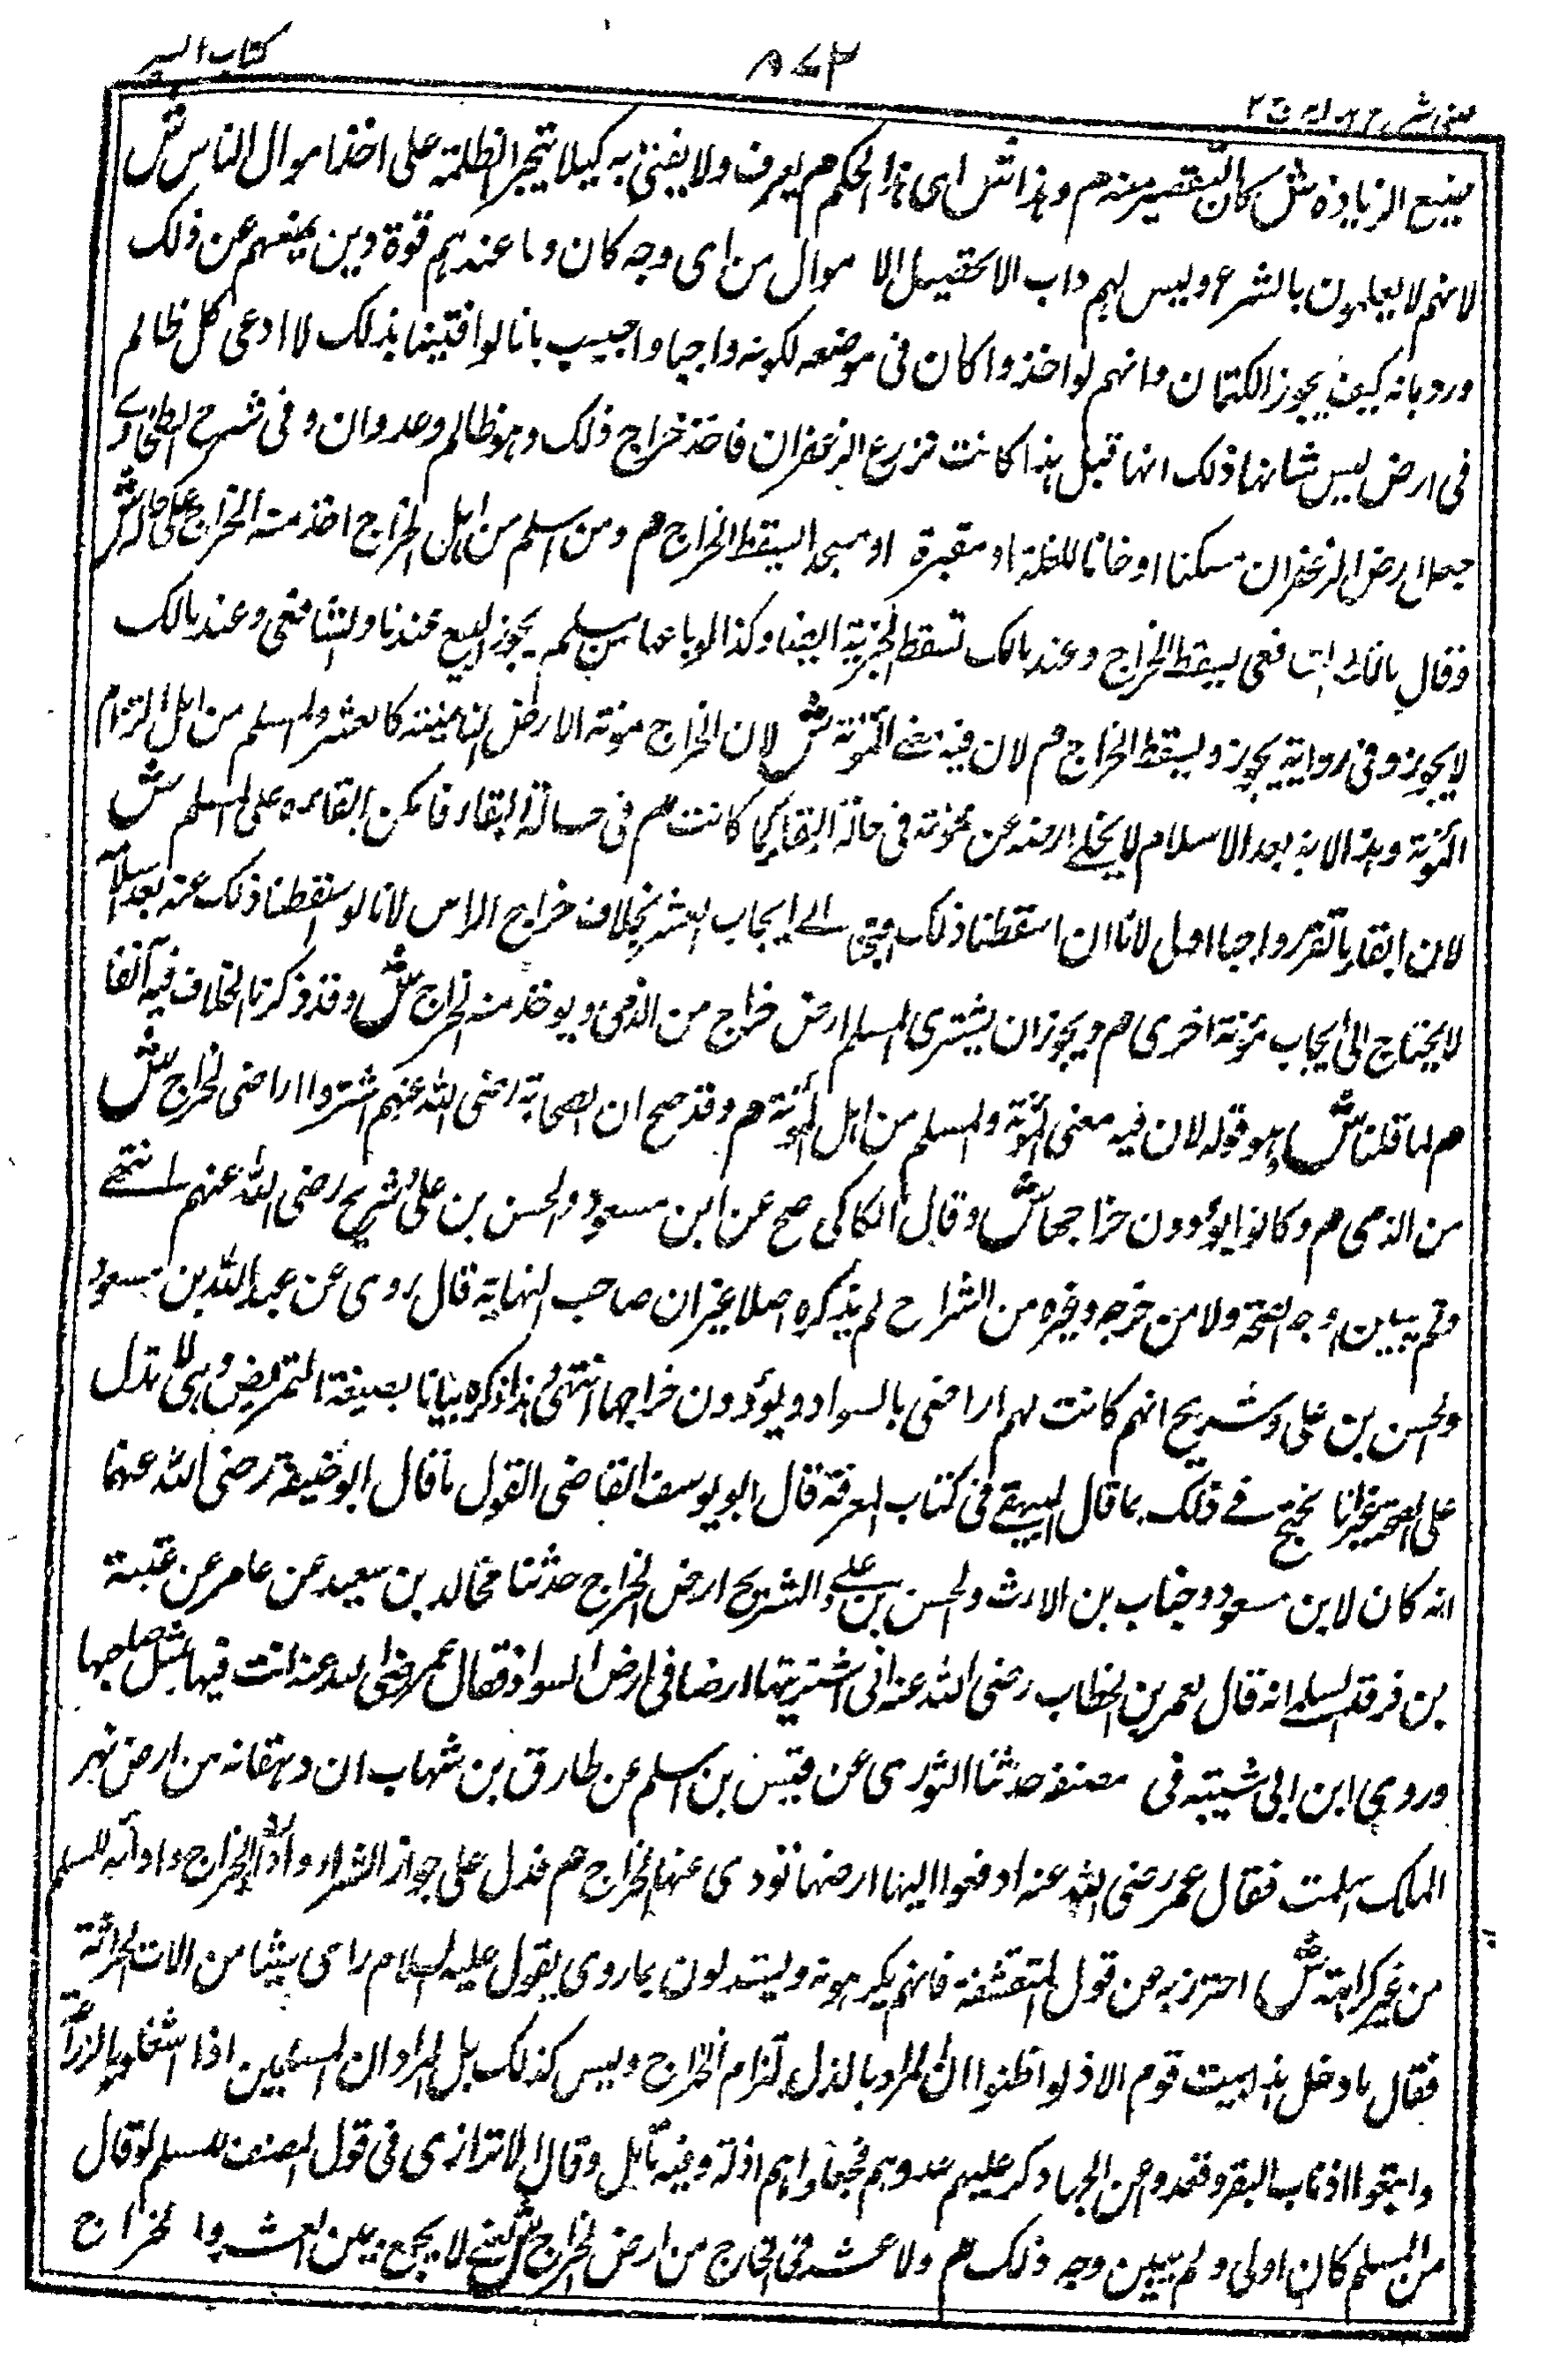 كتاب السير
٨٧٢
عينى شرح هداية ج ٢
فيضع الزيادة ش لمكان التقصير منه م وهذا ش اى هذا الحكم م يعرف ولا يفتى به كيلا يتجرأ الظلمة على اخذ اموال الناس ش
لانهم لا يعلمون بالشرع وليس لهم داب الا تحصيل الاموال من اى وجه كان وما عندهم قوة دين يمنعهم عن ذلك
ورد بانه كيف يجوز الكتمان وانهم لو اخذوا كان فى موضعه لكونه واجبا واجيب بانا لو افتينا بذلك لادعى كل ظالم
فى ارض ليس شانها ذلك انها قبل هذا كانت تزرع الزعفران فاخذ خراج ذلك وهو ظالم وعدوان وفى شرح الطحاوى
جعل ارض الزعفران مسكنا او خانا للغلة او مقبرة او مسجدا يسقط الخراج م ومن اسلم من اهل الخراج اخذ منه الخراج على حاله ش
وقال مالك والشافعى يسقط الخراج وعند مالك تسقط الجزية ايضا وكذا لو باعها من مسلم يجوز البيع عندنا والشافعى وعند مالك
لا يجوز وفى رواية يجوز ويسقط الخراج م لان فيه معنى المؤنة ش لان الخراج مؤنة الارض النامية كالعشر والمسلم من اهل التزام
المؤنة وهذا لانه بعد الاسلام لا يخلى ارضه عن مؤنة فى حالة البقاء كما كانت م فى حالة البقاء فامكن ابقاءه على المسلم ش
لان ابقاء ما تقرر واجبا اولى لانا ان اسقطنا ذلك احتجنا الى ايجاب العشر بخلاف خراج الراس لانا لو اسقطنا ذلك عنه بعد اسلامه
لا يحتاج الى ايجاب مؤنة اخرى م ويجوز ان يشترى المسلم ارض خراج من الذمى ويوخذ منه الخراج ش وقد ذكرنا الخلاف فيه آنفا
م لما قلنا ش وهو قوله لان فيه معنى المؤنة والمسلم من اهل المؤنة م وقد صح ان الصحابة رضى الله عنهم اشتروا اراضى الخراج ش
من الذمى م وكانوا يؤدون خراجها ش وقال الكاكى صح عن ابن مسعود والحسن بن على وشريح رضى الله عنهم انتهى
ولم يبين وجه الصحة ولا من خرجه وغيره من الشراح لم يذكره اصلا غير ان صاحب النهاية قال روى عن عبد الله بن مسعود
والحسن بن على وشريح انهم كانت لهم اراضى بالسواد ويؤدون خراجها انتهى وهذا ذكره بيانا بصيغة التمريض وهى لا تدل
على الصحة غير انا نحتج فى ذلك بما قال البيهقى فى كتاب المعرفة قال ابو يوسف القاضى القول ما قال ابو حنيفة رضى الله عنهما
انه كان لابن مسعود وخباب بن الارث والحسن بن على والشريح ارض الخراج حدثنا مجالد بن سعيد عن عامر عن عتبة
بن فرقد السلمى انه قال لعمر بن الخطاب رضى الله عنه انى اشتريت ارضا فى ارض السواد فقال عمر رضى الله عنه انت فيها مثل صاحبها
وروى ابن ابى شيبة فى مصنفه حدثنا الثورى عن قيس بن اسلم عن طارق بن شهاب ان دهقانة من ارض نهر
الملك اسلمت فقال عمر رضى الله عنه ادفعوا اليها ارضها تودى عنها الخراج م فدل على جواز الشراء واخذ الخراج وادائه للمسلم
من غير كراهة ش احترز به عن قول المتقشفة فانهم يكرهونه ويستدلون بما روى بقول عليه السلام راى شيئا من الات الحراثة
فقال ما دخل هذا بيت قوم الا ذلوا ظنوا ان المراد بالذل التزام الخراج وليس كذلك بل المراد ان المسلمين اذا اشتغلوا بالزراعة
واتبعوا اذناب البقر وقعدوا عن الجهاد كر عليهم عدوهم فجعلوهم اذلة وفيه تامل وقال الاترازى فى قول المصنف للمسلم لو قال
من المسلم كان اولى ولم يبين وجه ذلك م ولا عشر فى الخارج من ارض الخراج ش يعنى لا يجمع بين العشر والخراج